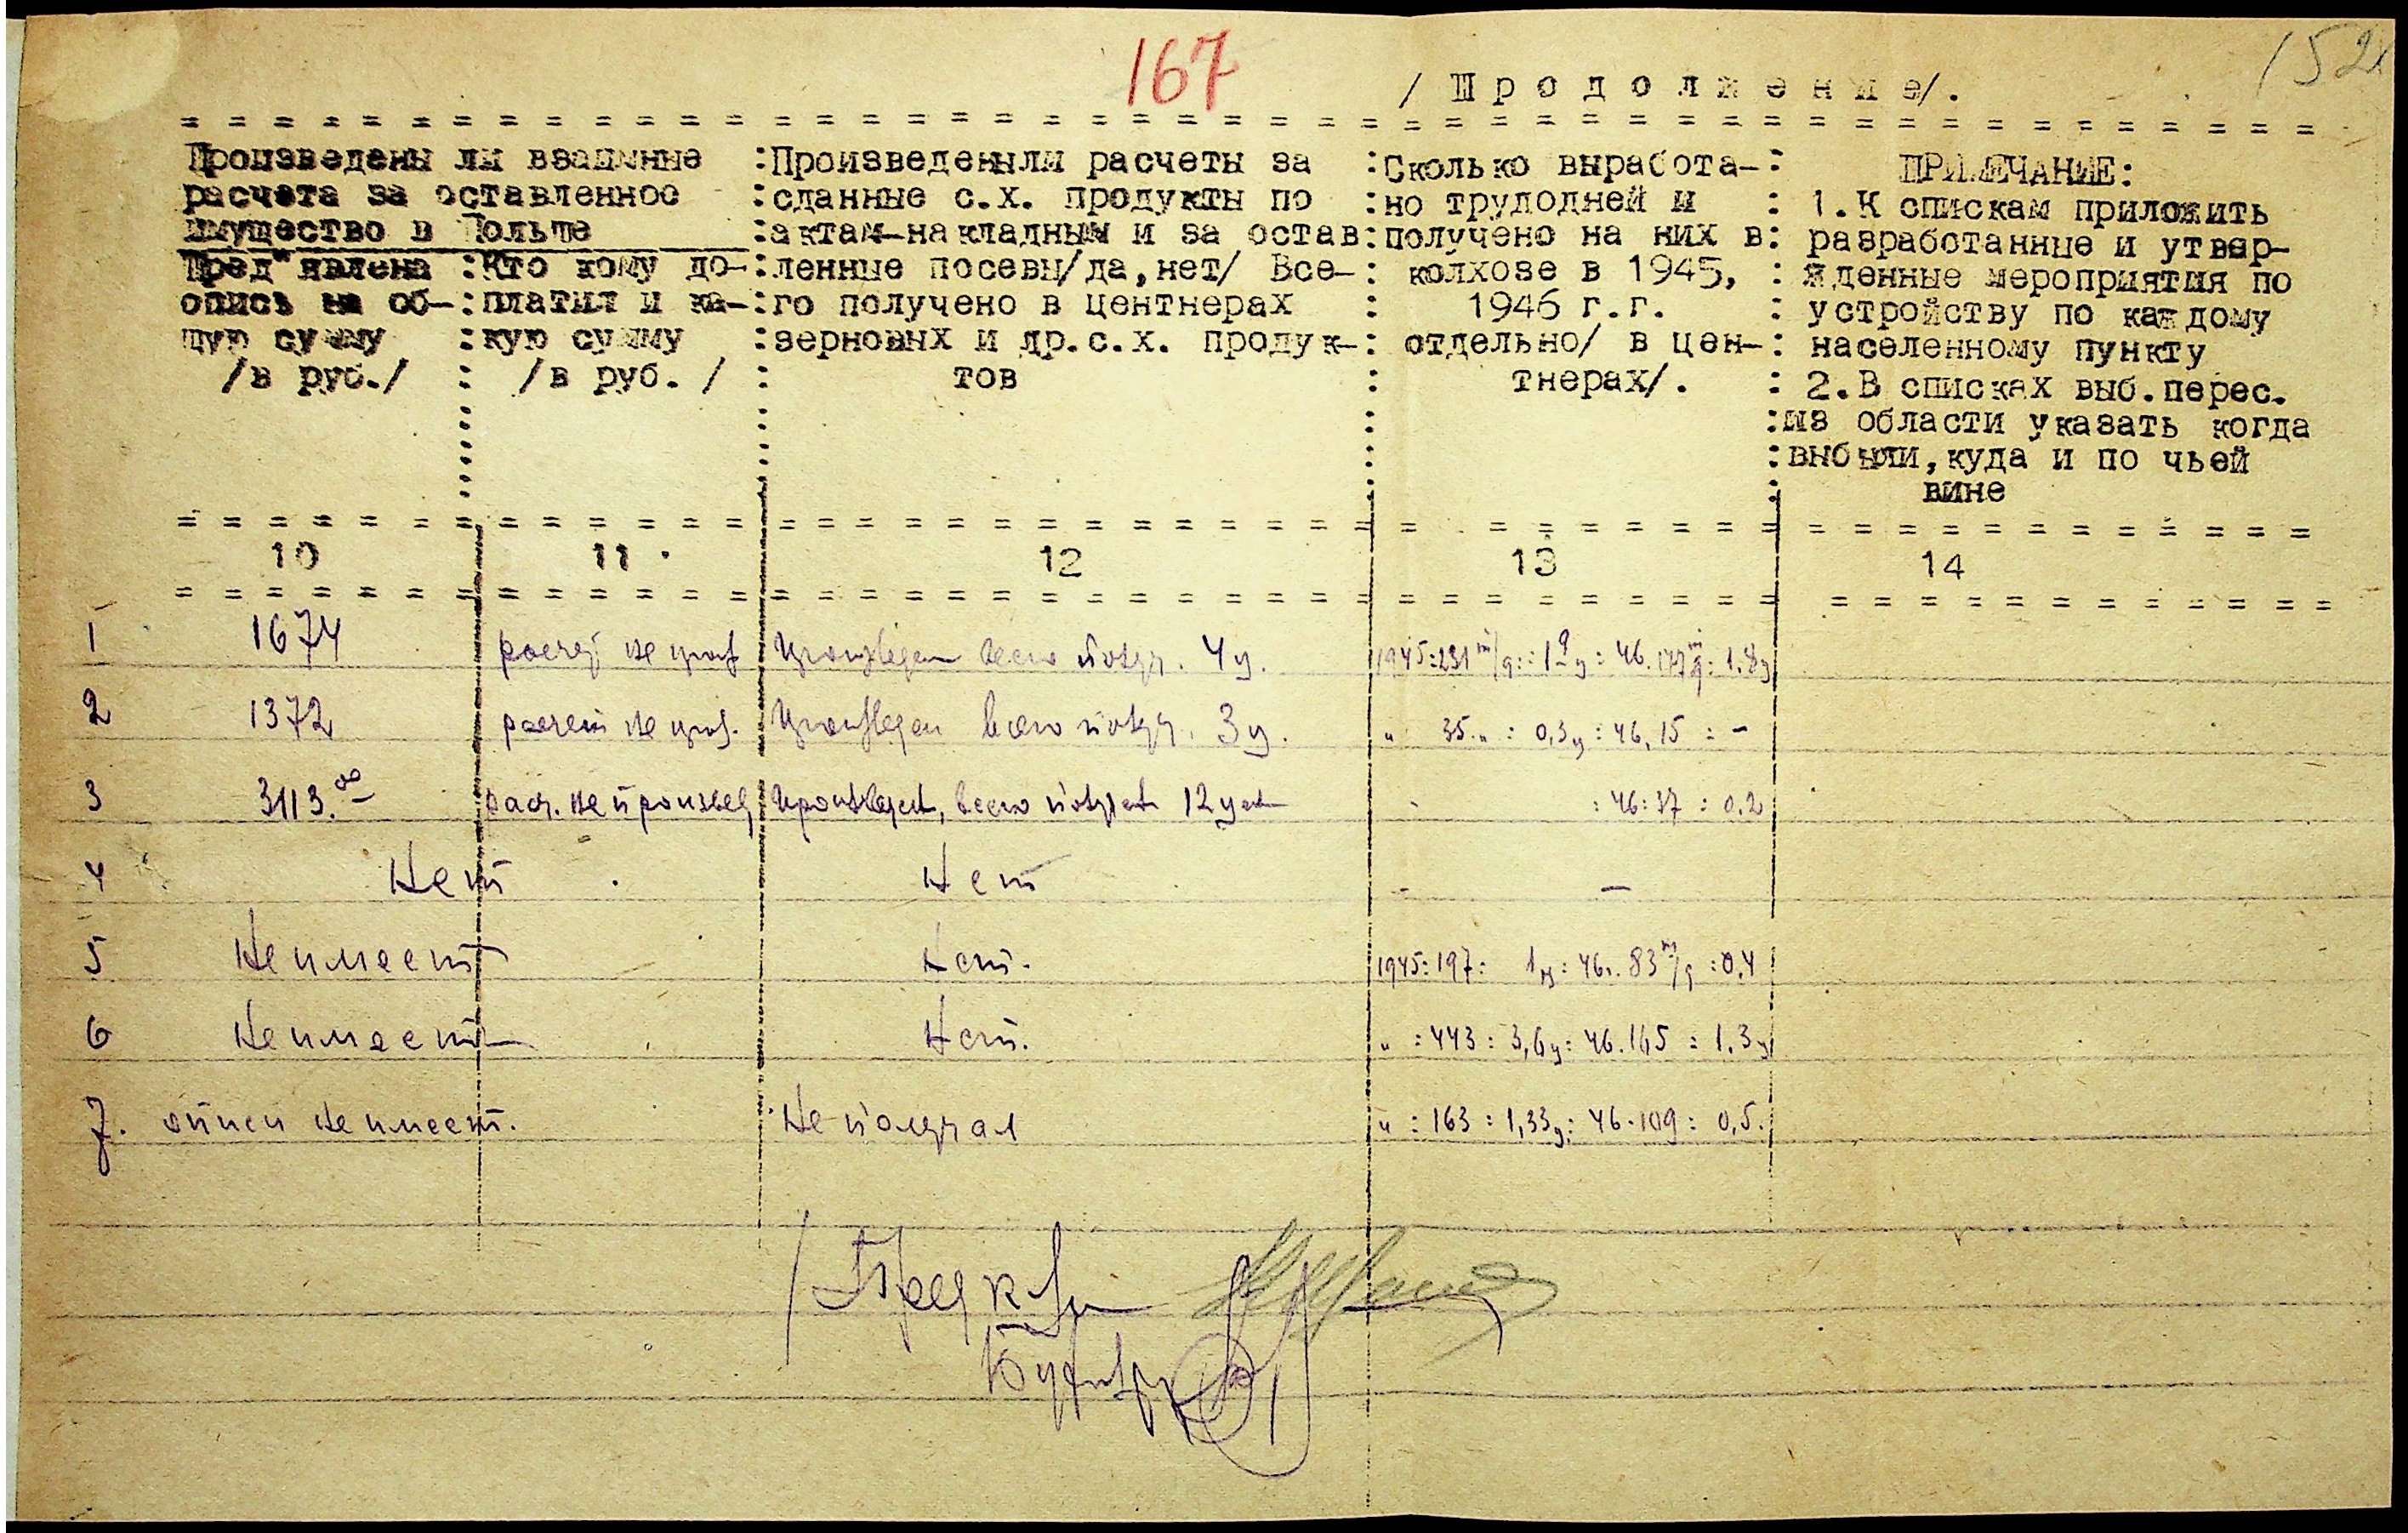 167
152
/ П р о д о л ж е н и е/.
Произведены ли взаимные : Произведеныли расчеты за : Сколько выработа- : ПРИМЕЧАНИЕ:
расчета за оставленное : сданные с.х. продукты по : но трудодней и : 1.К спискам приложить
имущество в Польше : актам-накладным и за остав : получено на них в : разработанные и утвер-
Пред"явлена : Кто кому до- : ленные посевы/да,нет/ Все- : колхозе в 1945, : жденные мероприятия по
опись на об- : платил и ка- : го получено в центнерах : 1946 г.г. : устройству по каждому
щую сумму : кую сумму : зерновых и др.с.х. продук- : отдельно/ в цен- : населенному пункту
/в руб./ : /в руб. / : тов : тнерах/. : 2.В списках выб.перес.
: из области указать когда
: выбыли, куда и по чьей
вине
10 11 12 13 14
1 1674 расчет не произ. Произведен всего получ. 4 ц. 1945:231 т/д: 1 ц: 46. 177 : 1.8ц
2 1372 расчет не произ. Произведен всего получ. 3 ц. " 35 " : 0,3ц : 46, 15 : -
3 3113.00 расч. не произвед Произведен, всего получен 12 цен : 46:37 : 0.2
4 Нет Нет - -
5 Не имеет Нет. 1945:197: 1ц: 46г. 83 т/д : 0.4
6 Не имеет Нет. " : 443 : 3,6ц: 46.165 : 1.3ц
7. описи не имеет. Не получал " : 163 : 1,33ц: 46.109 : 0,5.